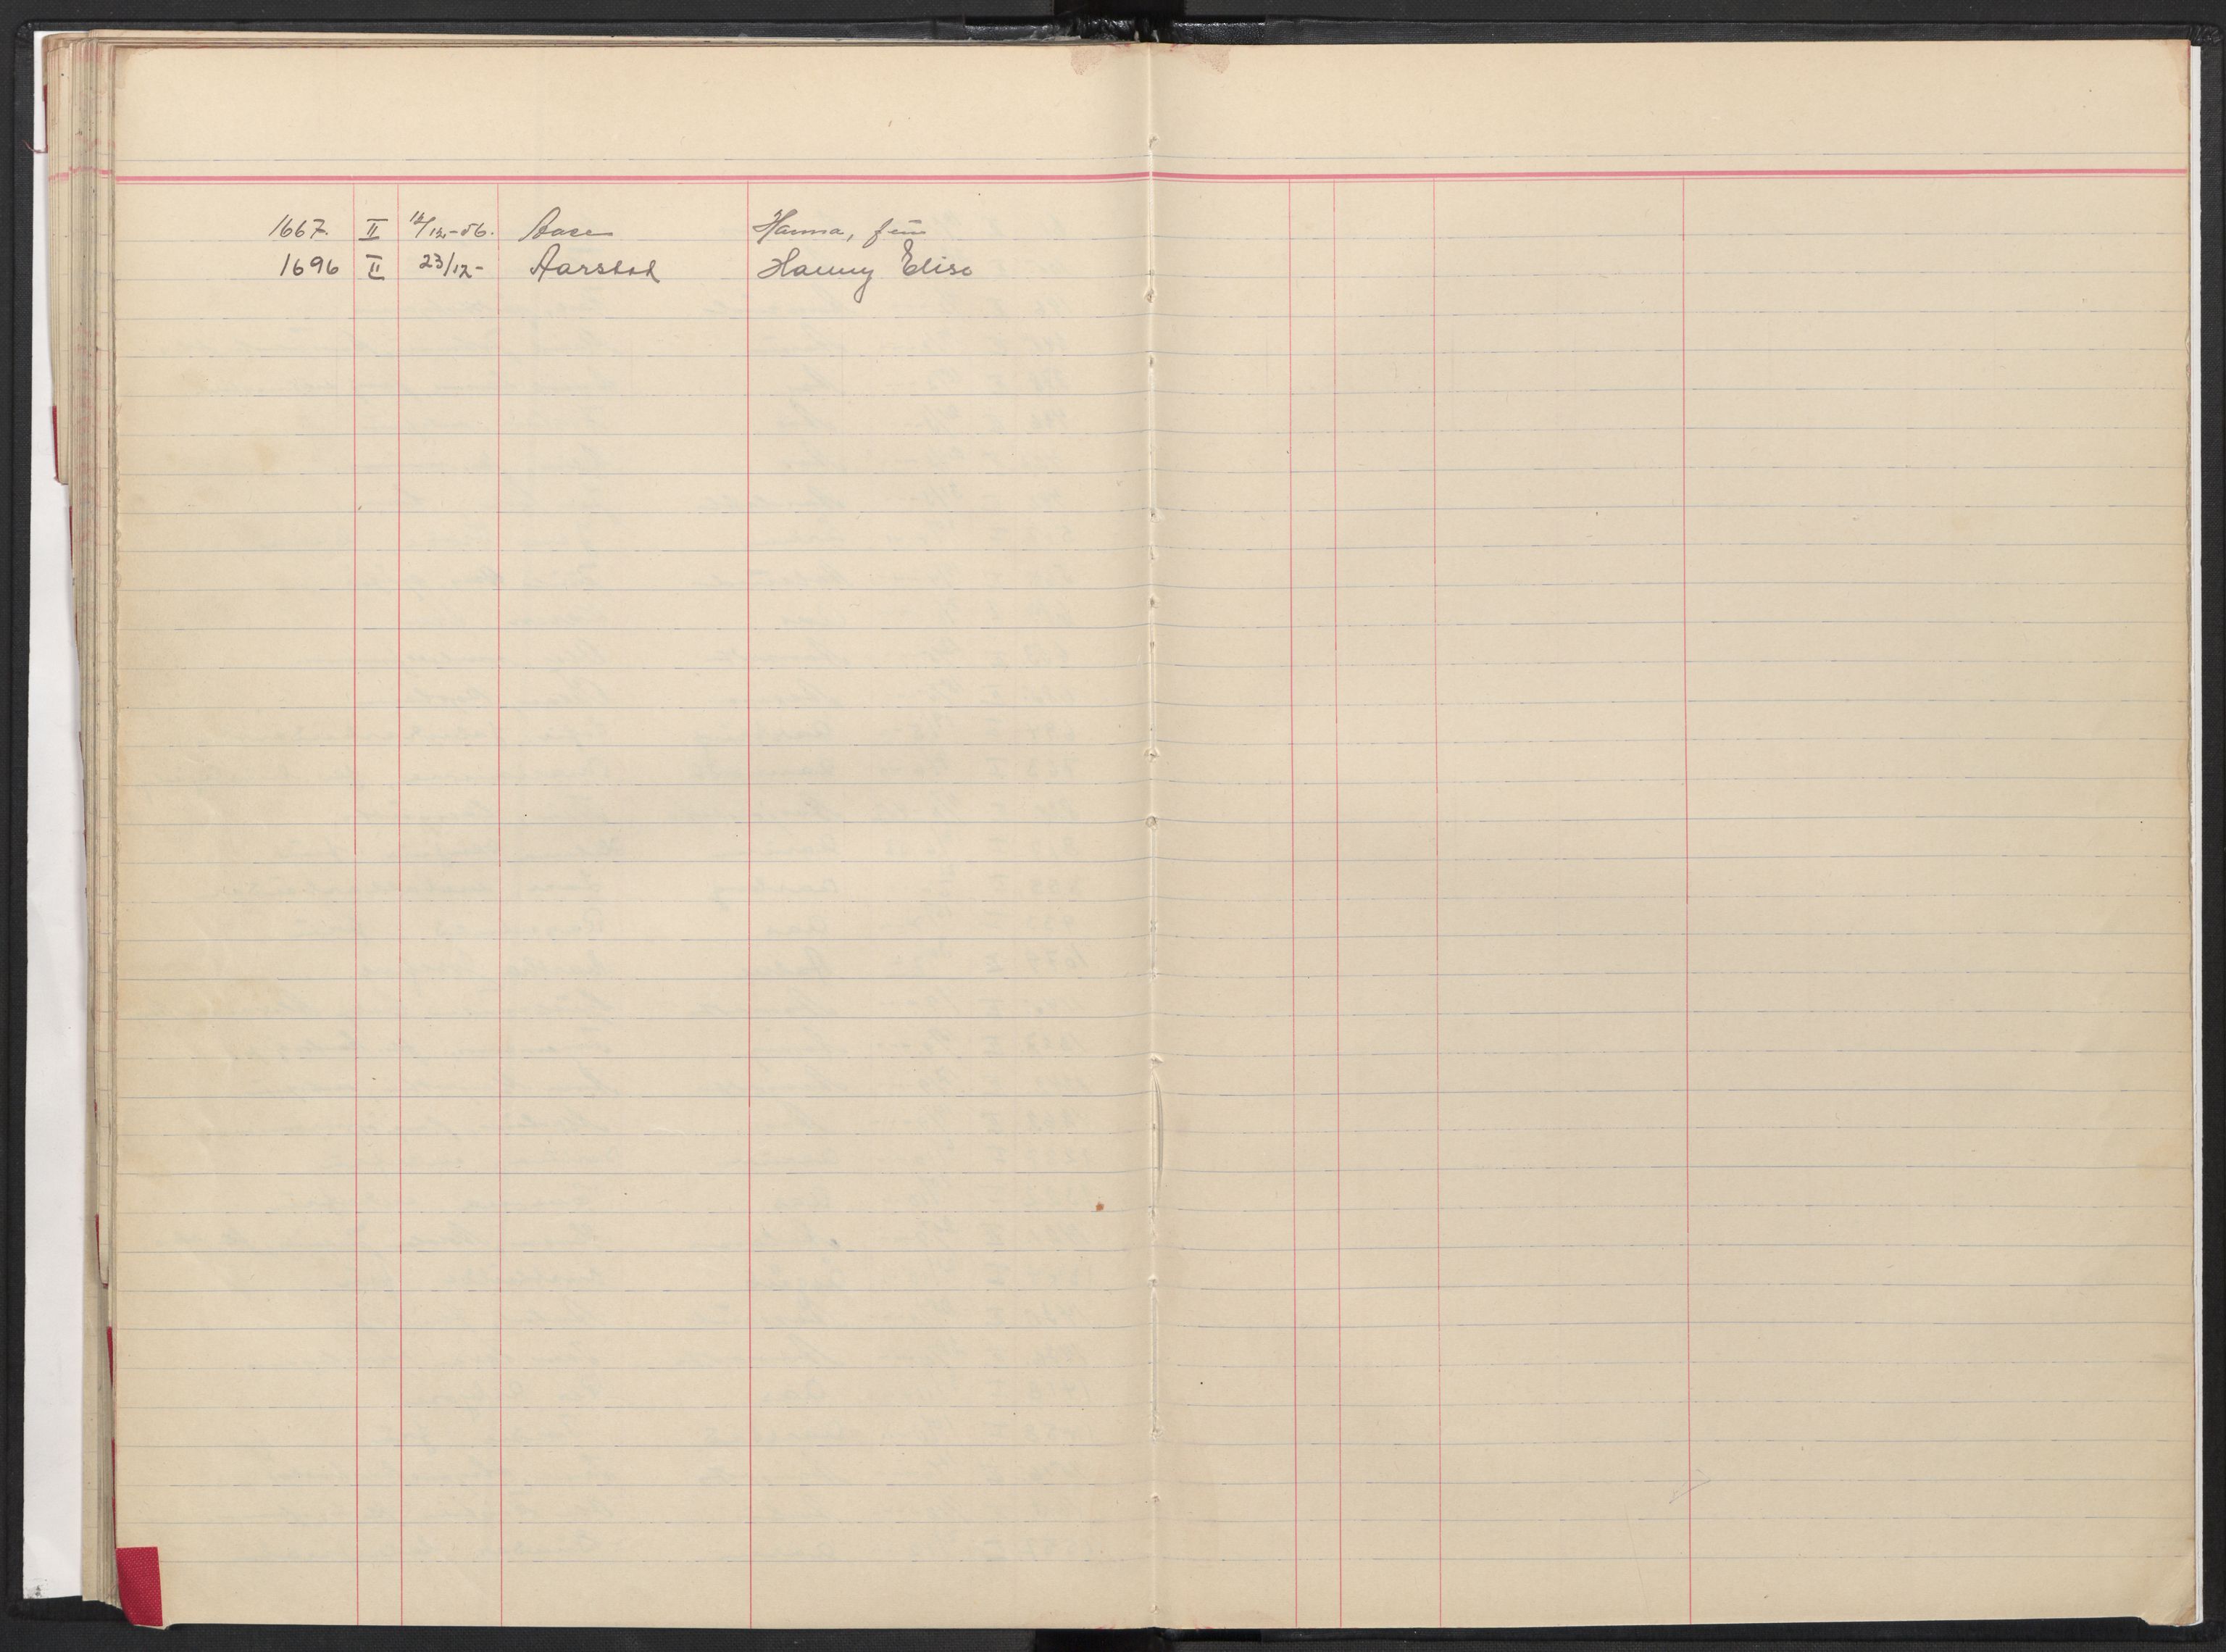 1667. II 14/12-56. Aasen Hanna, frue
1696 II 23/12- Aarstad Hanny Elise